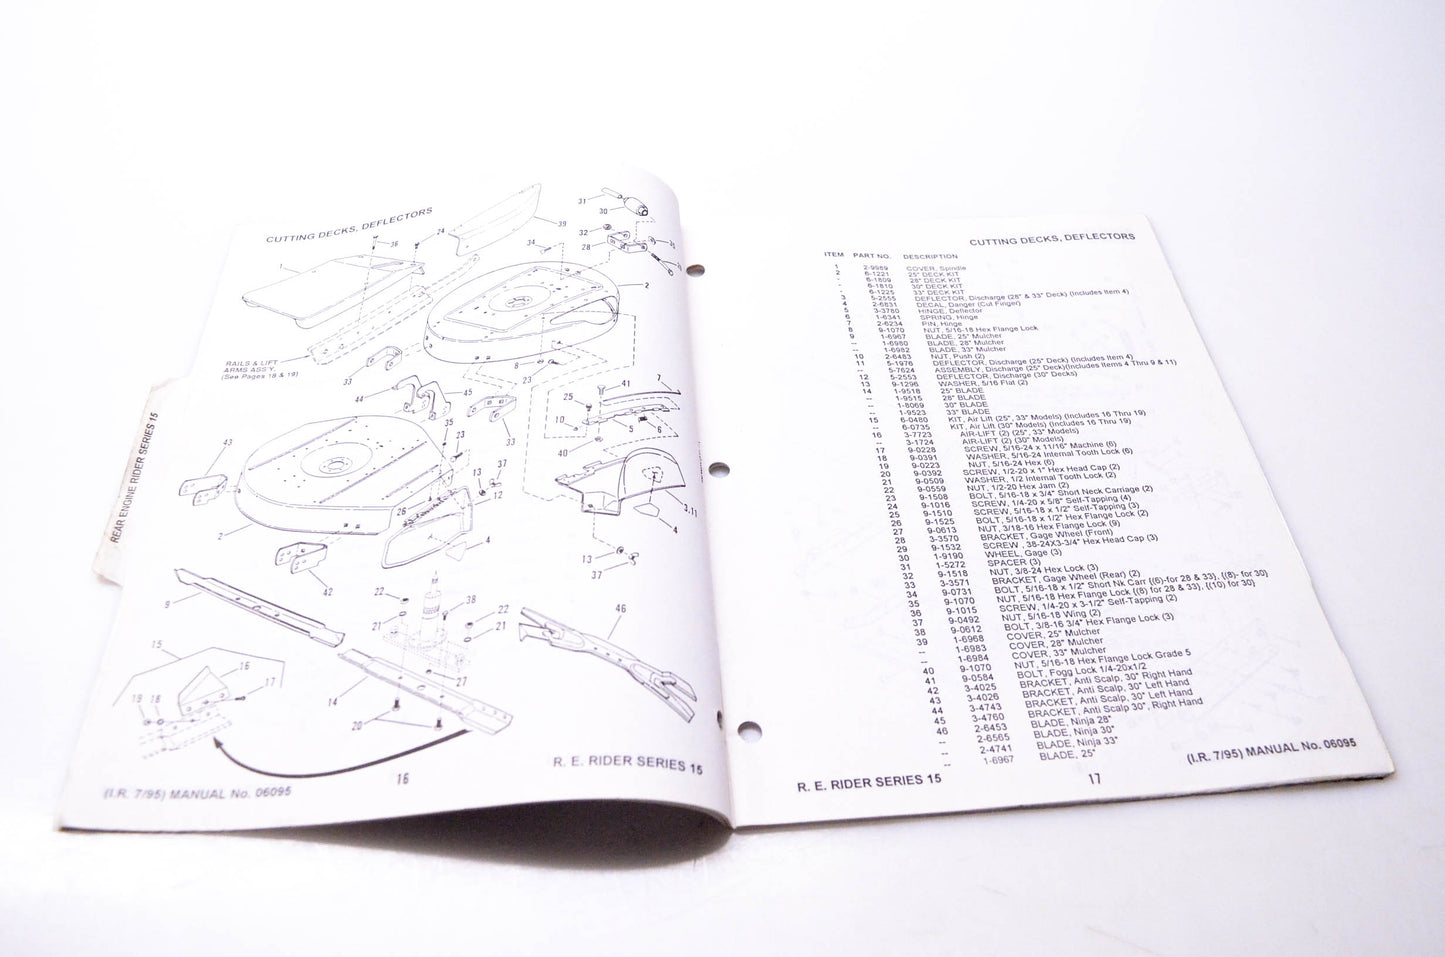 REAR ENGINE RIDER SERIES 15
CUTTING DECKS, DEFLECTORS
RAILS & LIFT
ARMS ASS'Y.
(See Pages 18 & 19)
1
36
24
39
34
31
30
32
28
2
33
44
45
8
23
41
7
25
10
5
6
40
43
35
23
33
13
37
12
26
3,11
4
2
4
13
37
42
9
22
38
22
21
21
46
15
16
17
27
14
19
18
20
(I.R. 7/95) MANUAL No. 06095
16
R. E. RIDER SERIES 15
CUTTING DECKS, DEFLECTORS
ITEM PART NO. DESCRIPTION
1 2-9989 COVER, Spindle
2 6-1221 25" DECK KIT
- 6-1809 28" DECK KIT
- 6-1810 30" DECK KIT
- 6-1225 33" DECK KIT
3 5-2555 DEFLECTOR, Discharge (28" & 33" Deck) (Includes Item 4)
4 2-6831 DECAL, Danger (Cut Finger)
5 3-3780 HINGE, Deflector
6 1-6341 SPRING, Hinge
7 2-6234 PIN, Hinge
8 9-1070 NUT, 5/16-18 Hex Flange Lock
9 1-6967 BLADE, 25" Mulcher
-- 1-6980 BLADE, 28" Mulcher
-- 1-6982 BLADE, 33" Mulcher
10 2-6483 NUT, Push (2)
11 5-1976 DEFLECTOR, Discharge (25" Deck) (Includes Item 4)
-- 5-7624 ASSEMBLY, Discharge (25" Deck)(Includes Items 4 Thru 9 & 11)
12 5-2553 DEFLECTOR, Discharge (30" Decks)
13 9-1296 WASHER, 5/16 Flat (2)
14 1-9518 25" BLADE
-- 1-9515 28" BLADE
-- 1-8069 30" BLADE
-- 1-9523 33" BLADE
15 6-0480 KIT, Air Lift (25", 33" Models) (Includes 16 Thru 19)
-- 6-0735 KIT, Air Lift (30" Models) (Includes 16 Thru 19)
16 3-7723 AIR-LIFT (2) (25", 33" Models)
-- 3-1724 AIR-LIFT (2) (30" Models)
17 9-0228 SCREW, 5/16-24 x 11/16" Machine (6)
18 9-0391 WASHER, 5/16-24 Internal Tooth Lock (6)
19 9-0223 NUT, 5/16-24 Hex (6)
20 9-0392 SCREW, 1/2-20 x 1" Hex Head Cap (2)
21 9-0509 WASHER, 1/2 Internal Tooth Lock (2)
22 9-0559 NUT, 1/2-20 Hex Jam (2)
23 9-1508 BOLT, 5/16-18 x 3/4" Short Neck Carriage (2)
24 9-1016 SCREW, 1/4-20 x 5/8" Self-Tapping (4)
25 9-1510 SCREW, 5/16-18 x 1/2" Self-Tapping (3)
26 9-1525 BOLT, 5/16-18 x 1/2" Hex Flange Lock (2)
27 9-0613 NUT, 3/18-16 Hex Flange Lock (9)
28 3-3570 BRACKET, Gage Wheel (Front)
29 9-1532 SCREW , 38-24X3-3/4" Hex Head Cap (3)
30 1-9190 WHEEL, Gage (3)
31 1-5272 SPACER (3)
32 9-1518 NUT, 3/8-24 Hex Lock (3)
33 3-3571 BRACKET, Gage Wheel (Rear) (2)
34 9-0731 BOLT, 5/16-18 x 1/2" Short Nk Carr {(6)-for 28 & 33}, {(8)- for 30}
35 9-1070 NUT, 5/16-18 Hex Flange Lock {(8) for 28 & 33}, {(10) for 30}
36 9-1015 SCREW, 1/4-20 x 3-1/2" Self-Tapping (2)
37 9-0492 NUT, 5/16-18 Wing (2)
38 9-0612 BOLT, 3/8-16 3/4" Hex Flange Lock (3)
39 1-6968 COVER, 25" Mulcher
-- 1-6983 COVER, 28" Mulcher
-- 1-6984 COVER, 33" Mulcher
40 9-1070 NUT, 5/16-18 Hex Flange Lock Grade 5
41 9-0584 BOLT, Fogg Lock 1/4-20x1/2
42 3-4025 BRACKET, Anti Scalp, 30" Right Hand
43 3-4026 BRACKET, Anti Scalp, 30" Left Hand
44 3-4743 BRACKET, Anti Scalp, 30" Left Hand
45 3-4760 BRACKET, Anti Scalp 30", Right Hand
46 2-6453 BLADE, Ninja 28"
-- 2-6565 BLADE, Ninja 30"
-- 2-4741 BLADE, Ninja 33"
-- 1-6967 BLADE, 25"
R. E. RIDER SERIES 15
17
(I.R. 7/95) MANUAL No. 06095